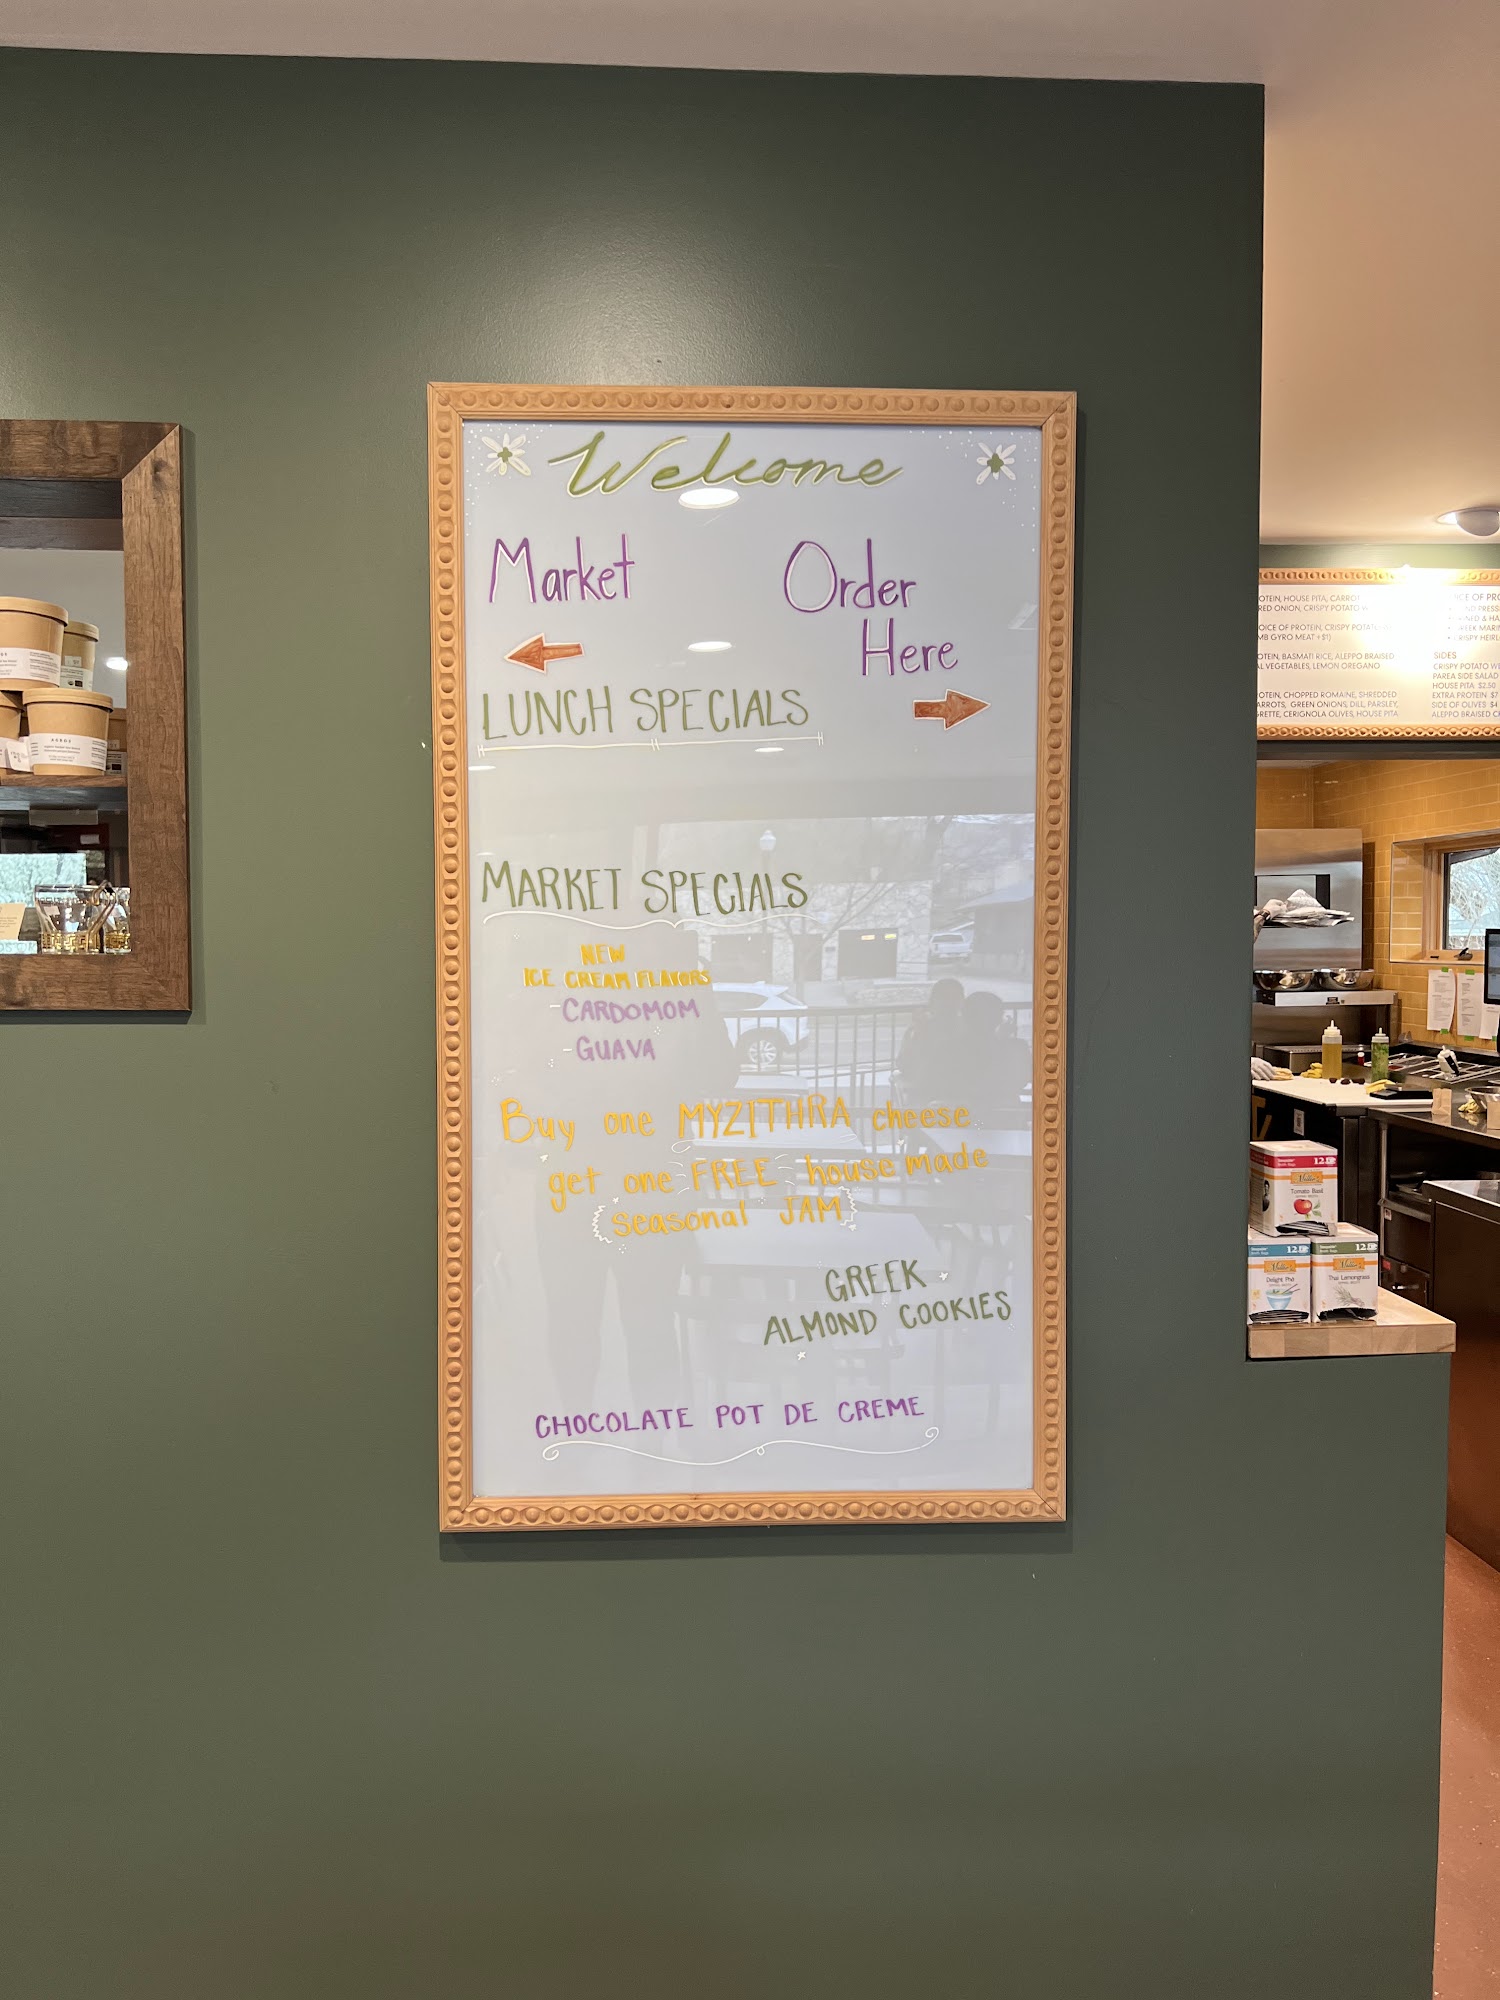 Welcome
Market
Order
Here
LUNCH SPECIALS
MARKET SPECIALS
NEW
ICE CREAM FLAVORS
-CARDOMOM
-GUAVA
Buy one MYZITHRA cheese
get one FREE house made
seasonal JAM
GREEK
ALMOND COOKIES
CHOCOLATE POT DE CREME
OTEIN, HOUSE PITA, CARROT
RED ONION, CRISPY POTATO W
OICE OF PROTEIN, CRISPY POTATO
MB GYRO MEAT +$1)
OTEIN, BASMATI RICE, ALEPPO BRAISED
AL VEGETABLES, LEMON OREGANO
OTEIN, CHOPPED ROMAINE, SHREDDED
ARROTS, GREEN ONIONS, DILL, PARSLEY,
RETTE, CERIGNOLA OLIVES, HOUSE PITA
ICE OF PRO
SIDES
CRISPY POTATO WE
PAREA SIDE SALAD
HOUSE PITA $2.50
EXTRA PROTEIN $7
SIDE OF OLIVES $4
ALEPPO BRAISED C
12
Millie's
Tomato Basil
12
Millie's
Delight Pho
12
Millie's
Thai Lemongrass